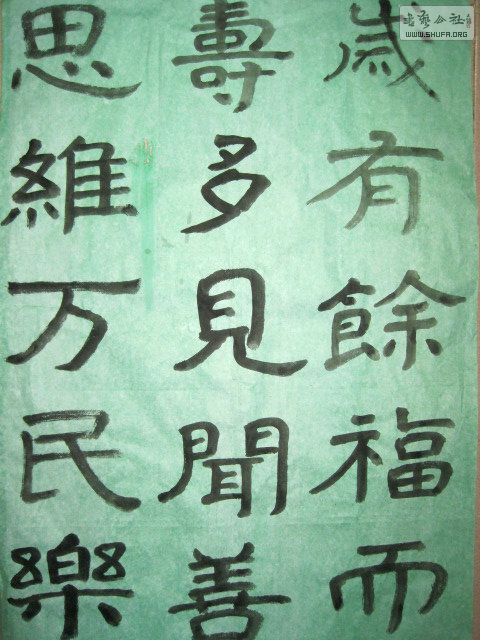 歲有餘福而
壽多見聞善
思維万民樂
书艺公社
WWW.SHUFA.ORG